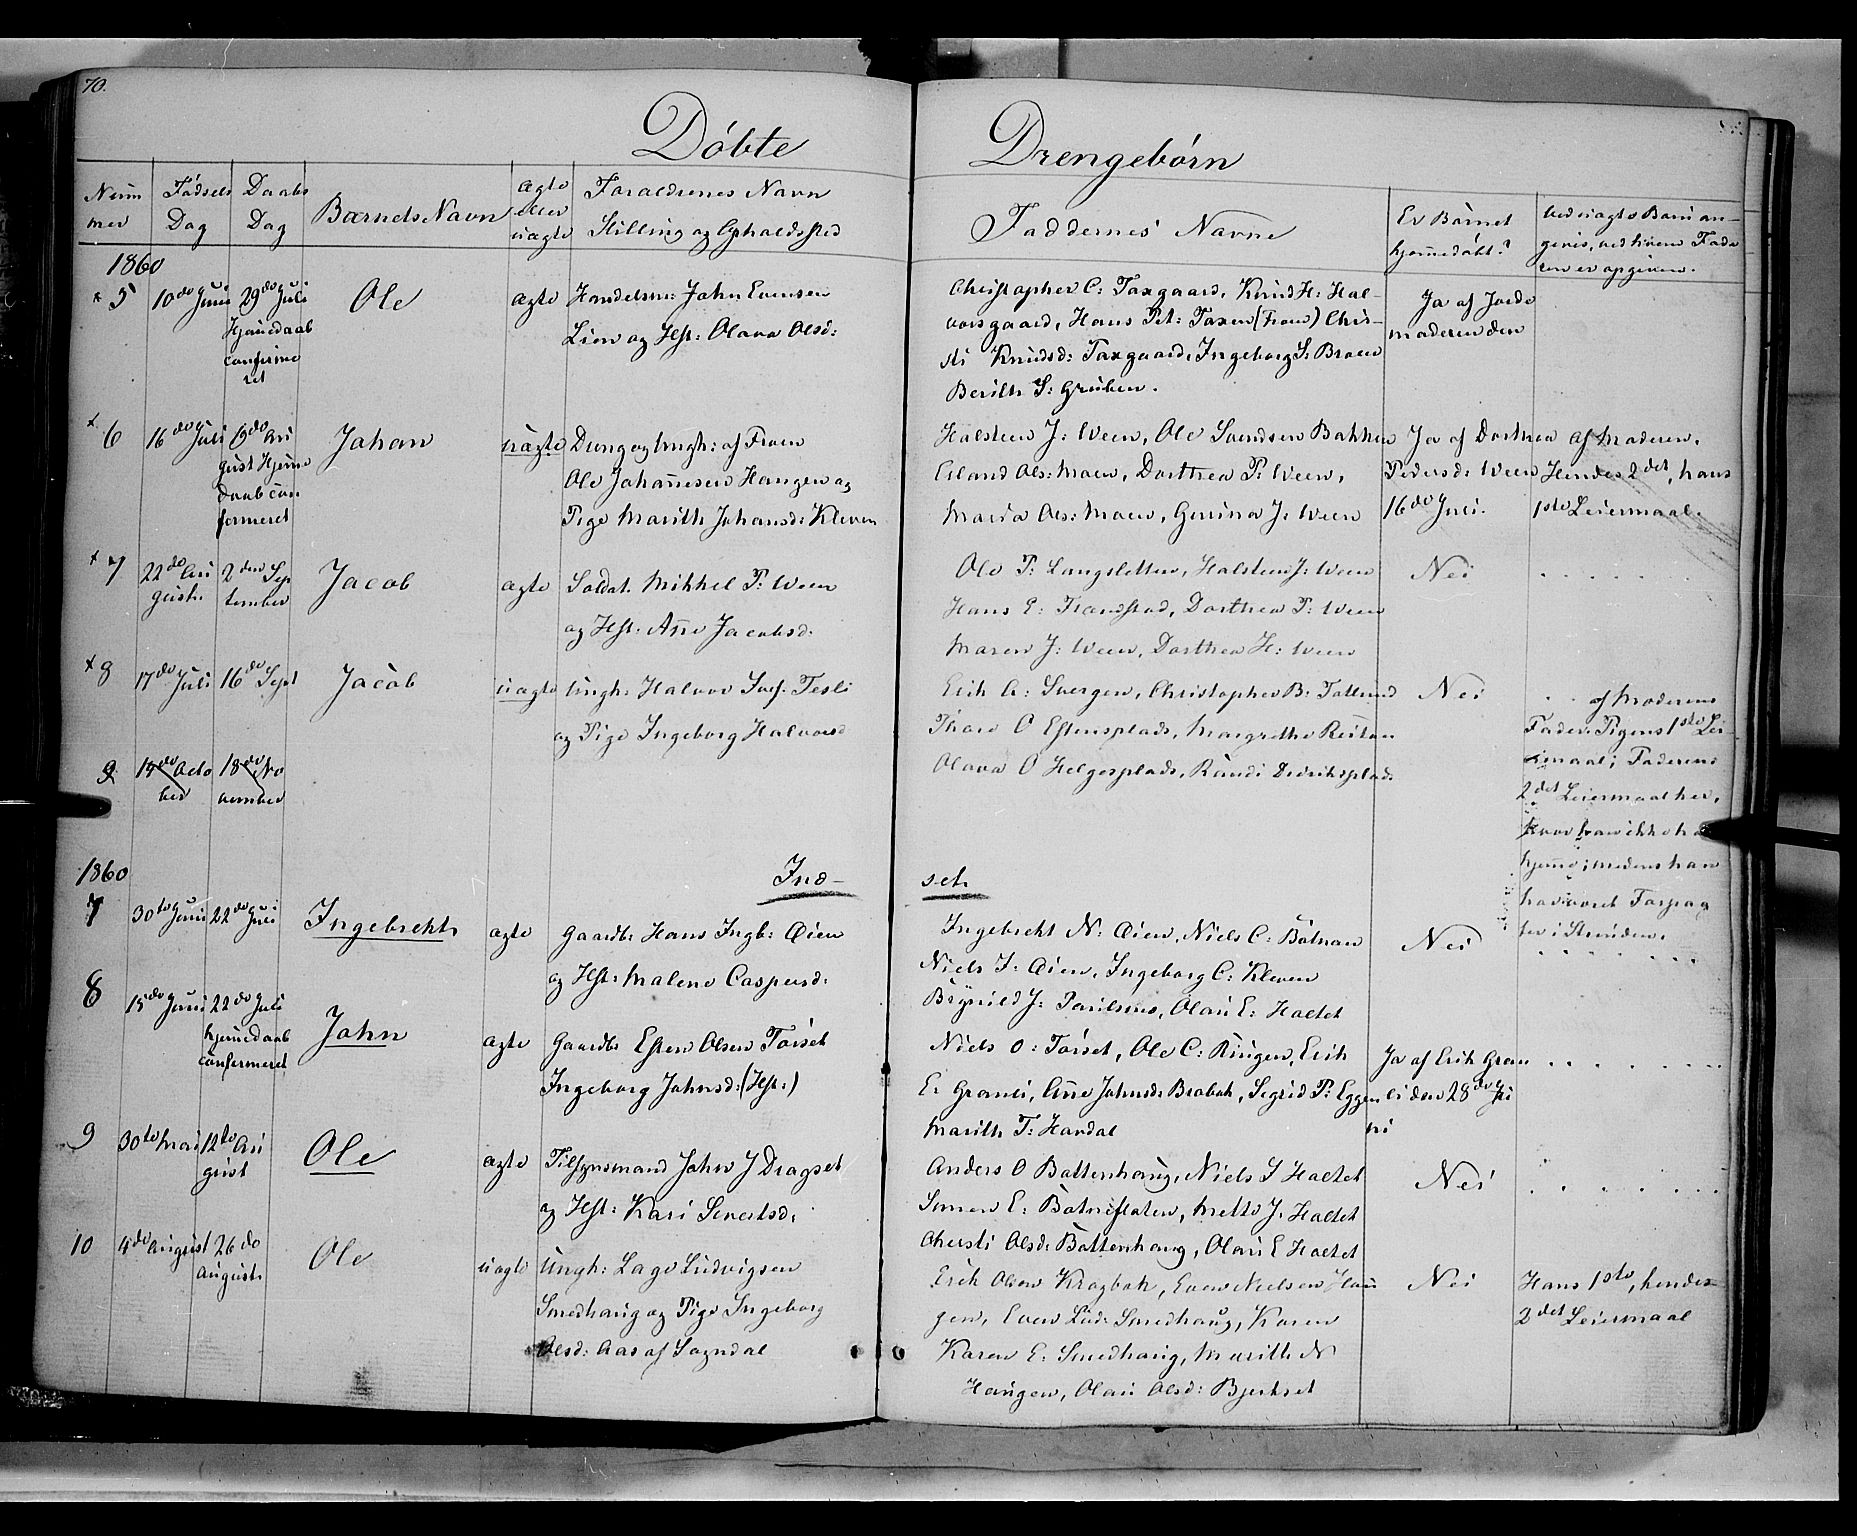 70.
Döbte Drengebörn
Num
mer
Födsels
Dag
Daabs
Dag
Barnets Navn
ægte
eller
uægte
Foraldrenes Navn
Stilling og Opholdssted
Faddernes Navne
Er Barnet
hjemmedöbt?
Ved uægte Barn an-
gives, ved hvem Fade
ren er opgiven.
1860
5
10do Juni
29do Juli
Hjemedaab
confirme
ret
Ole
ægte
Handelsm: John Evensen
Lien og Hst: Olava Olsd:
Christopher C: Taxgaard, Knud H: Hal-
vorsgaard, Hans Pet: Taxen (Fraen) Chir-
sti Knudsd: Taxgaard, Ingeborg S: Braen
Berith S: Gruben.
Ja af Jorde
moderen den
6
16do Juli
19do Au
gust Hjeme
daab con
fermeret
Johan
uægte
Dreng og Ungk: af Fraen
Ole Johannesen Haugen og
Pige Marith Johansd: Kleven
Halsteen J: Ween, Ole Svendsen Bakken
Erland Ols: Moen, Dorthea P: Ween,
Maria Ols: Moen, Gurina J: Ween
Ja af Dorthea
Pedersd: Ween
16do Juli.
af Moderen.
Hendes 2det, hans
1ste Leiermaal.
7
22do Au
gust.
2den Sep
tember
Jacob
ægte
Soldat. Mikkel P: Ween
og Hst: Anne Jacobsd.
Ole P: Langsletten, Halsteen J: Ween
Hans E: Frandstad, Dorthea P: Ween
Maren J: Ween, Dorthea H: Ween
Nei
8
17do Juli
16do Sept
Jacob
uægte
Ungk: Halvor Tesli
og Pige Ingeborg Halvorsd
Erik A: Svergen, Christopher B:
Thore O Estensplads, Margrethe Reitan
Olava O Helgesplads, Randi Didriksplads
Nei
af Moderens
Fader. Pigens 1ste Lei
ermaal; Faderens
2det Leiermaal her,
hvor han ikke ha
hjeme; medens han
har været Forpag
ter i Strinden.
9
19do Octo
ber
18do No
vember
1860
Ind- set
7
30te Juni
22do Juli
Ingebrekt
ægte
Gaardb: Hans Ingb: Øien
og Hst: Malene Caspersd.
Ingebrekt N: Øien, Niels C: Botnan
Niels J: Øien, Ingeborg C: Kleven
Brynild J: Olau E: Haltet
Nei
8
15do Juni
22do Juli
hjemedaab
confermeret
John
ægte
Gaardb: Esten Olsen Torset
Ingeborg Johnsd: (Hst:)
Niels O: Torset, Ole C: Ringen, Erik
E: Granli, Anne Johnsd: Brobak, Sigrid P: Eggen
Marith T: Hardal
Ja af Erik Gran
li den 28do Ju
ni
9
30te Mai
12te Au
gust
Ole
ægte
Tilsynsmand John J Dragset
og Hst: Kari Sivertsd.
Anders O Battenhaug, Niels J Haltet
Simen E: Botneflaten, Mette J: Haltet
Chersti Olsd: Battenhaug, Olau E Haltet
Nei
10
4do August
26do
August.
Ole
uægte
Ungk: Lage Ludvigsen
Smedhaug og Pige Ingeborg
Olsd: Aas af Sogndal
Erik Olsen Kragbak, Even Nielsen Hau
gen, Even Lud: Smedhaug, Karen
Karen E: Smedhaug, Marith N
Haugen, Olau Olsd: Bjerkset
Nei
Hans 1ste, hendes
2det Leiermaal